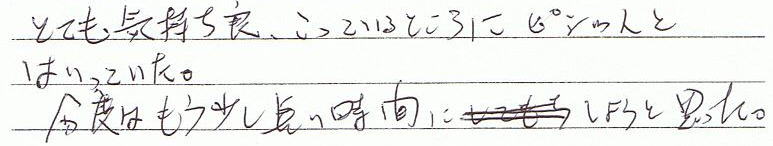 とても気持ち良、こっているところにピシッんと
はいっていた。
今度はもう少し長い時間にしようと思った。